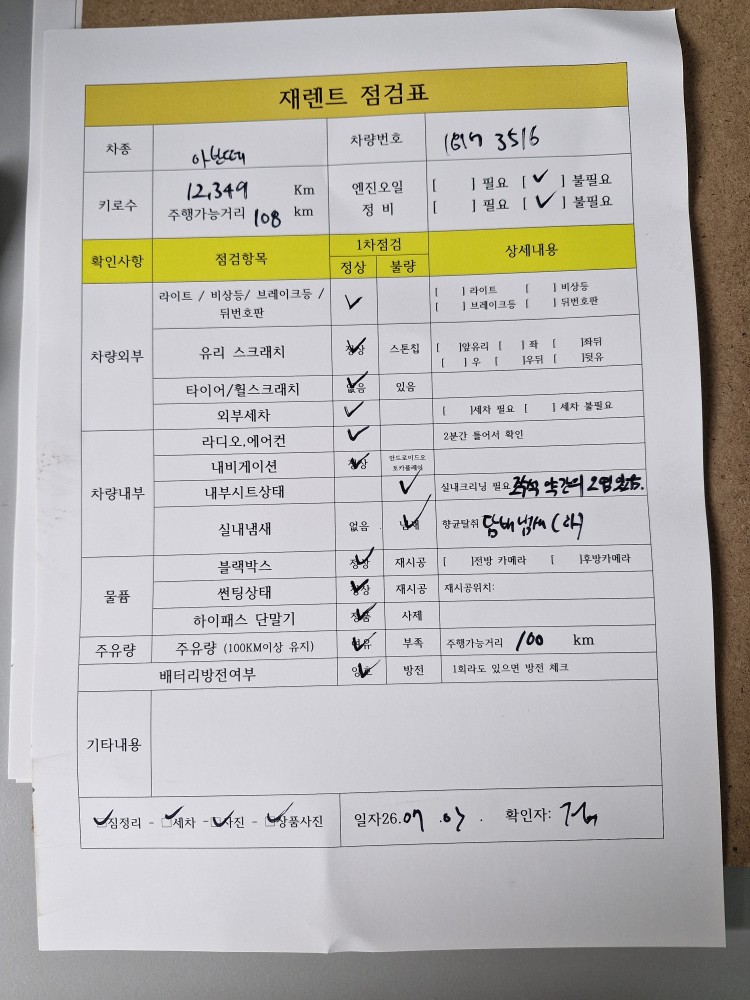 재렌트 점검표
차종 아반떼 차량번호 3516
키로수 12,349 Km 엔진오일 [ ] 필요 [ ✓ ] 불필요
주행가능거리 108 km 정 비 [ ] 필요 [ ✓ ] 불필요
확인사항 점검항목 1차점검 상세내용
정상 불량
차량외부 라이트 / 비상등/ 브레이크등 / 뒤번호판 ✓ [ ] 라이트 [ ] 비상등
[ ] 브레이크등 [ ] 뒤번호판
유리 스크래치 정상 ✓ 스톤칩 [ ]앞유리 [ ] 좌 [ ]좌뒤
[ ] 우 [ ]우뒤 [ ]뒷유
타이어/휠스크래치 없음 ✓ 있음
외부세차 ✓ [ ]세차 필요 [ ] 세차 불필요
차량내부 라디오,에어컨 ✓ 2분간 틀어서 확인
내비게이션 정상 ✓ 안드로이드오토카플레이
내부시트상태 ✓ 실내크리닝 필요 약간의 오염 있음.
실내냄새 없음 냄새 ✓ 향균탈취 담배 냄새 (하)
물품 블랙박스 정상 ✓ 재시공 [ ]전방 카메라 [ ]후방카메라
썬팅상태 정상 ✓ 재시공 재시공위치:
하이패스 단말기 정품 ✓ 사제
주유량 주유량 (100KM이상 유지) 여유 ✓ 부족 주행가능거리 100 km
배터리방전여부 양호 ✓ 방전 1회라도 있으면 방전 체크
기타내용
✓짐정리 - ✓세차 - ✓사진 - ✓상품사진 일자26.07 .07 . 확인자: